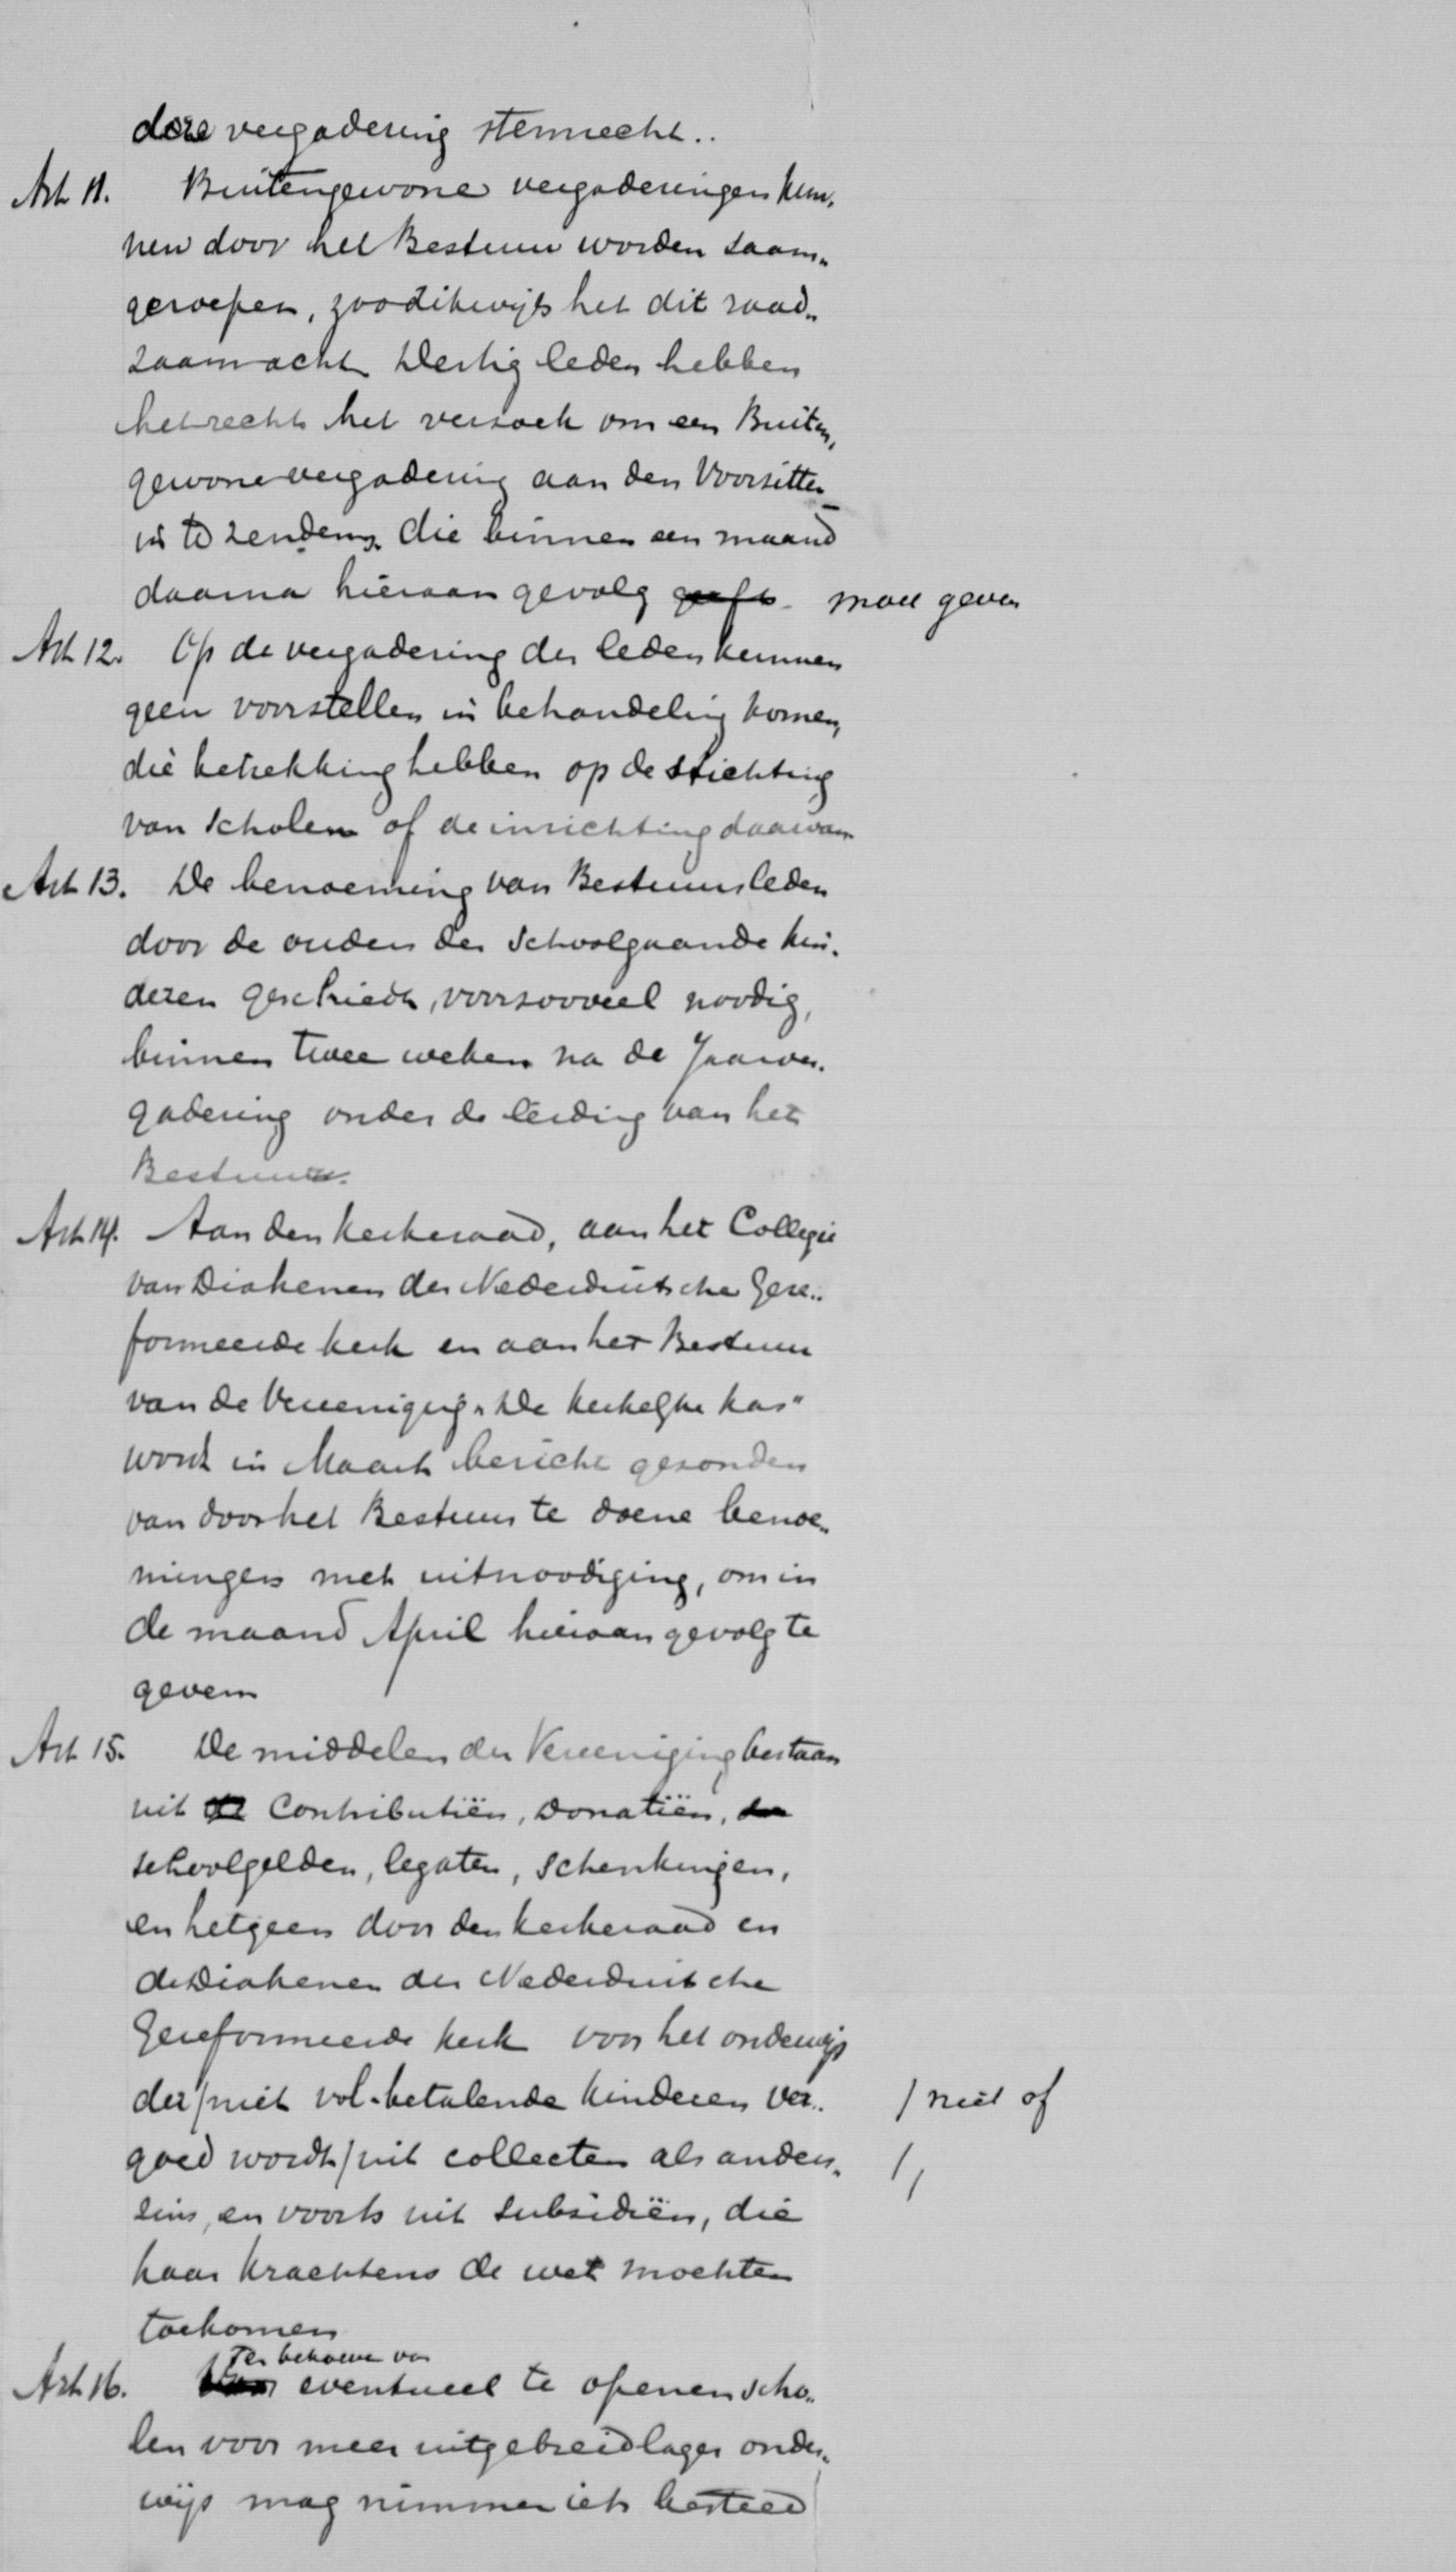 deze vergadering stemrecht..
Art. 11. Buitengewone vergaderingen kun-
nen door het Bestuur worden saam-
geroepen, zoodikwijls het dit raad-
zaam acht. Dertig leden hebben
het recht het verzoek om een Buiten-
gewone vergadering aan den Voorzitter
in te zenden, die binnen een maand
daarna hieraan gevolg geeft. moet geven
Art 12. Op de vergadering der leden kunnen
geen voorstellen in behandeling komen,
die betrekking hebben op de stichting
van scholen of de inrichting daarvan
Art 13. De benoeming van Bestuursleden
door de ouders der schoolgaande kin-
deren geschiedt, voorzooveel noodig,
binnen twee weken na de Jaarver-
gadering onder de leiding van het
Bestuur.
Art. 14. Aan den kerkeraad, aan het Collegie
van Diakenen der Nederduitsche Gere-
formeerde kerk en aan het Bestuur
van de Vereeniging "De kerkelijke kas"
wordt in Maart bericht gezonden
van door het Bestuur te doene benoe-
mingen met uitnoodiging, om in
de maand April hieraan gevolg te
geven
Art 15. De middelen der Vereeniging bestaan
uit de Contributiën, Donatiën, de
schoolgelden, legaten, schenkingen,
en hetgeen door den kerkeraad en
de Diakenen der Nederduitsche
Gereformeerde kerk voor het onderwijs
der / niet vol-betalende kinderen ver- / niet of
goed wordt / uit collecten als anders- /,
zins, en voorts uit subsidiën, die
haar krachtens de wet mochten
toekomen
Ter behoeve van
Art. 16. Voor eventueel te openen scho-
len voor meer uitgebreid lager onder-
wijs mag nimmer iets besteed